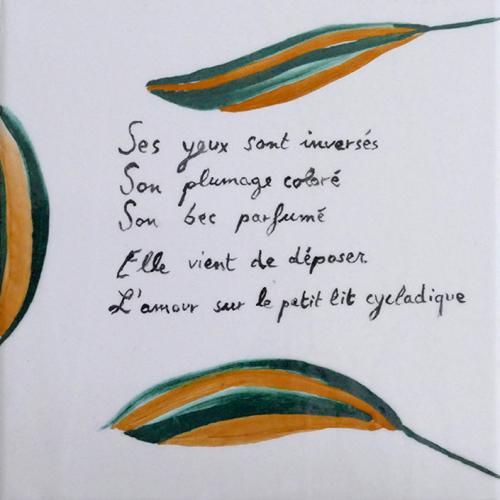 Ses yeux sont inversés
Son plumage coloré
Son bec parfumé
Elle vient de déposer
L'amour sur le petit lit cycladique